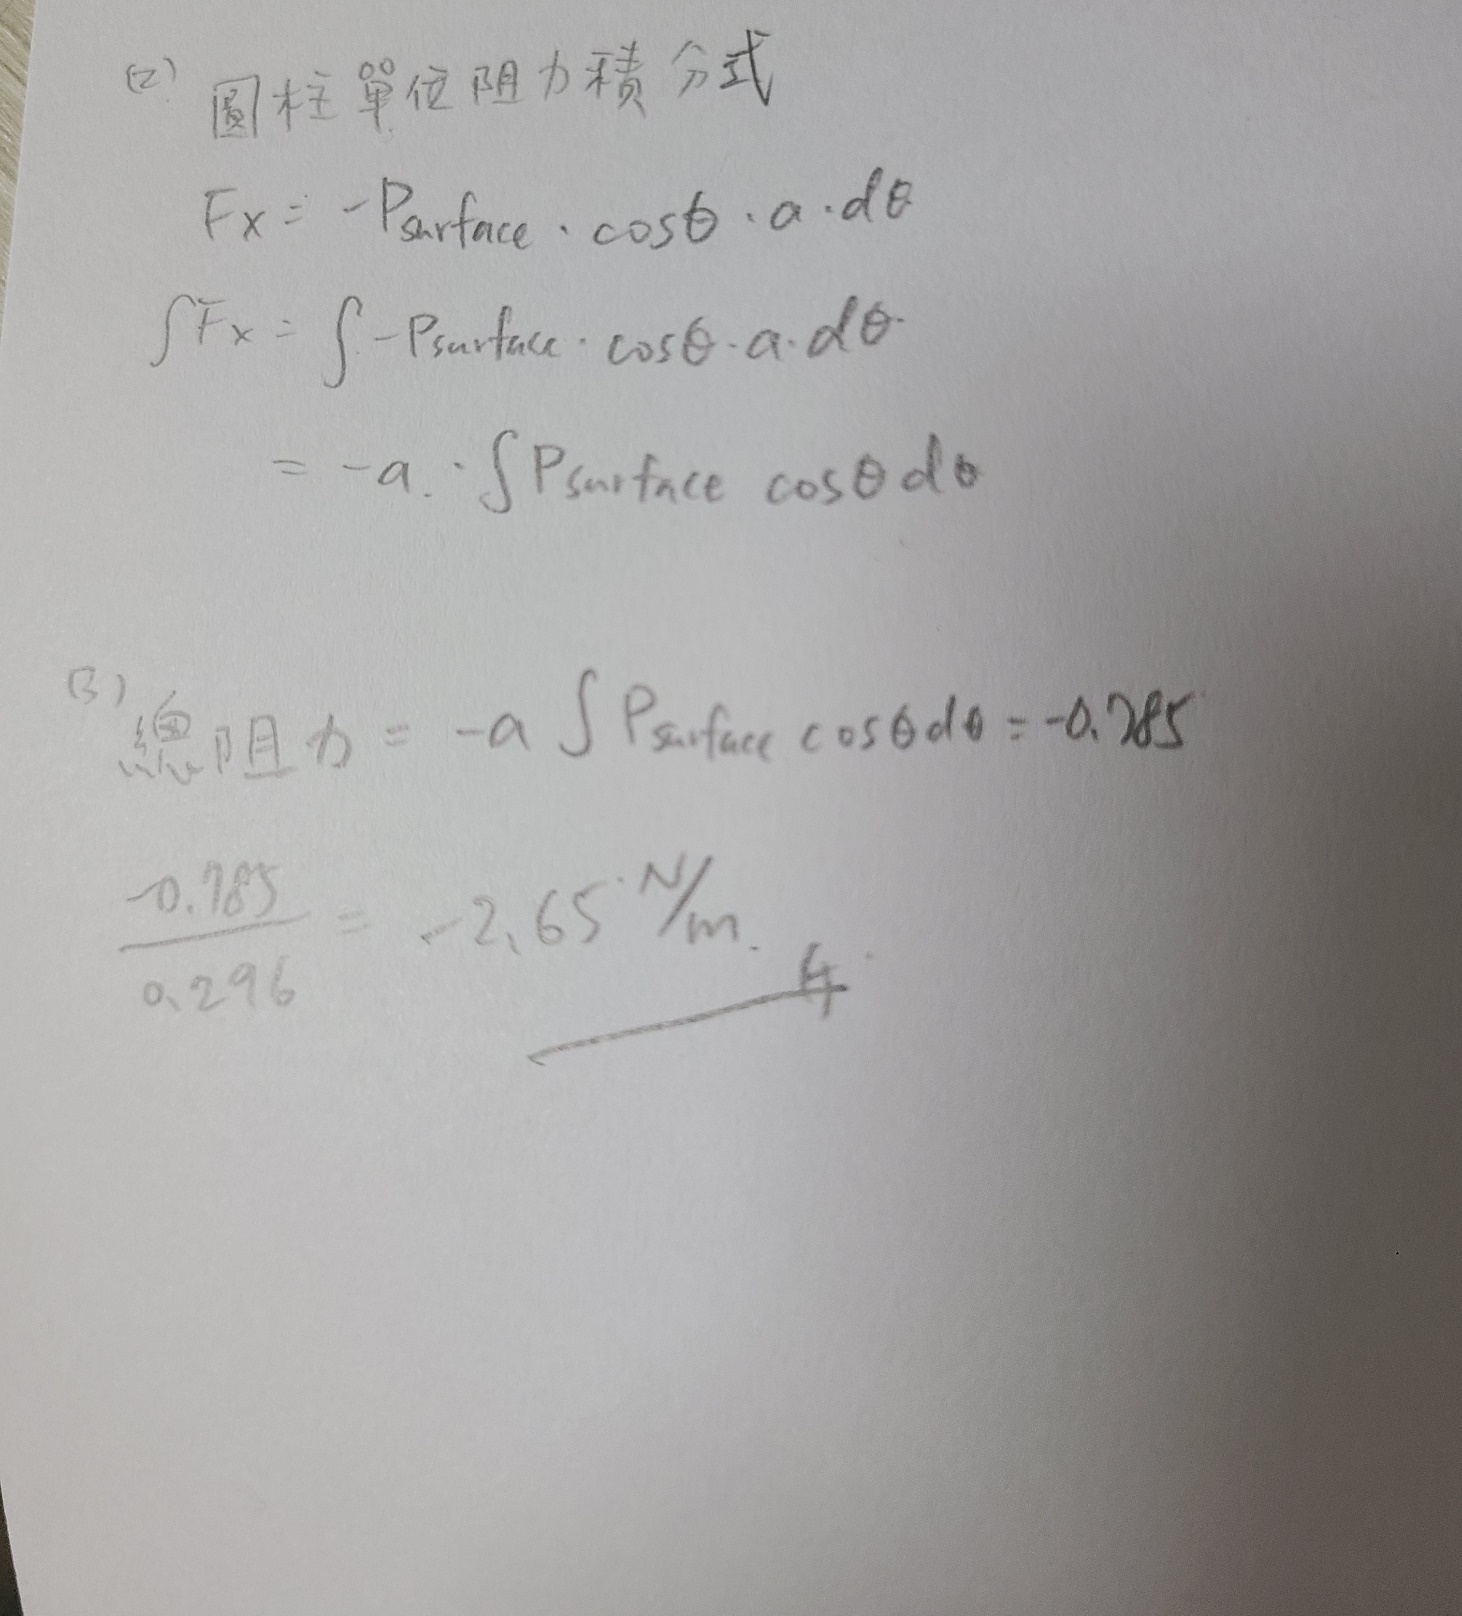 (2) 圓柱單位阻力積分式
Fx = -Psurface · cosθ · a · dθ
∫Fx = ∫ -Psurface · cosθ · a · dθ
= -a · ∫ Psurface cosθ dθ
(3) 總阻力 = -a ∫ Psurface cosθ dθ = -0.785
-0.785
0.296
= -2.65 N/m